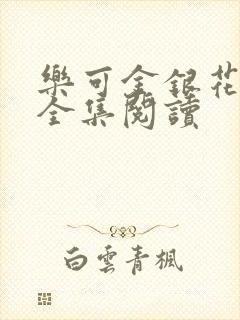 樂可金銀花
全集閱讀
白雲青楓